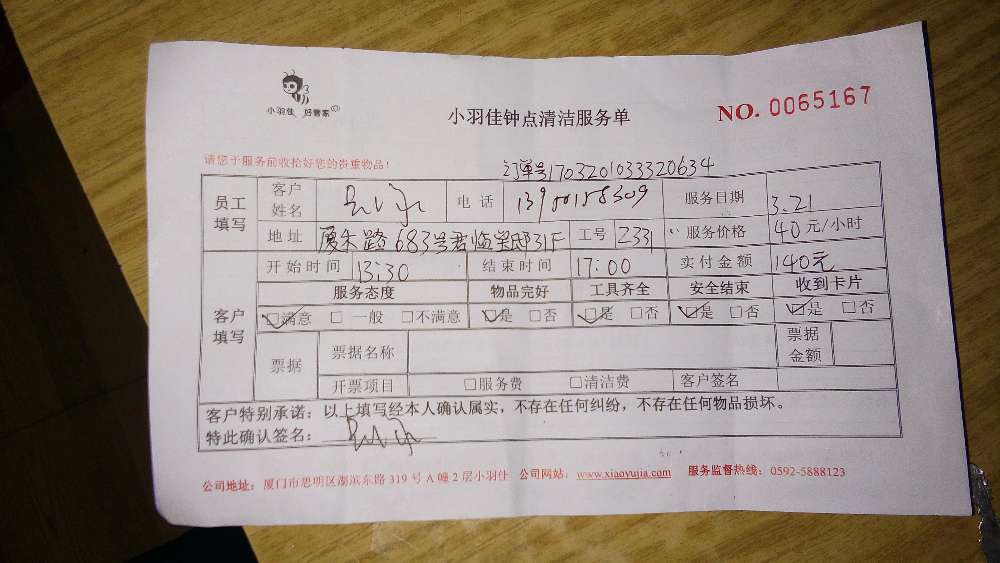 小羽佳 好管家
小羽佳钟点清洁服务单
NO. 0065167
请您于服务前收拾好您的贵重物品!
订单号1703201033320634
员工填写 客户姓名 电话 服务日期 3.21
地址 厦禾路683号君临华邸31F 工号 2331 服务价格 40元/小时
客户填写 开始时间 13:30 结束时间 17:00 实付金额 140元
服务态度 物品完好 工具齐全 安全结束 收到卡片
☑满意 □一般 □不满意 ☑是 □否 ☑是 □否 ☑是 □否 ☑是 □否
票据 票据名称 票据金额
开票项目 □服务费 □清洁费 客户签名
客户特别承诺：以上填写经本人确认属实，不存在任何纠纷，不存在任何物品损坏。
特此确认签名：
公司地址：厦门市思明区湖滨东路319号A幢2层小羽佳 公司网站：www.xiaoyujia.com 服务监督热线：0592-5888123